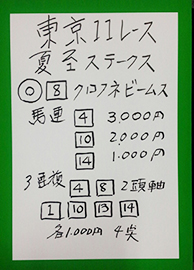 東京11レース
夏至ステークス
◎ 8 クロフネビームス
馬連 4 3,000円
10 2,000円
14 1,000円
3連複 4 8 2頭軸
1 10 13 14
各1,000円 4点